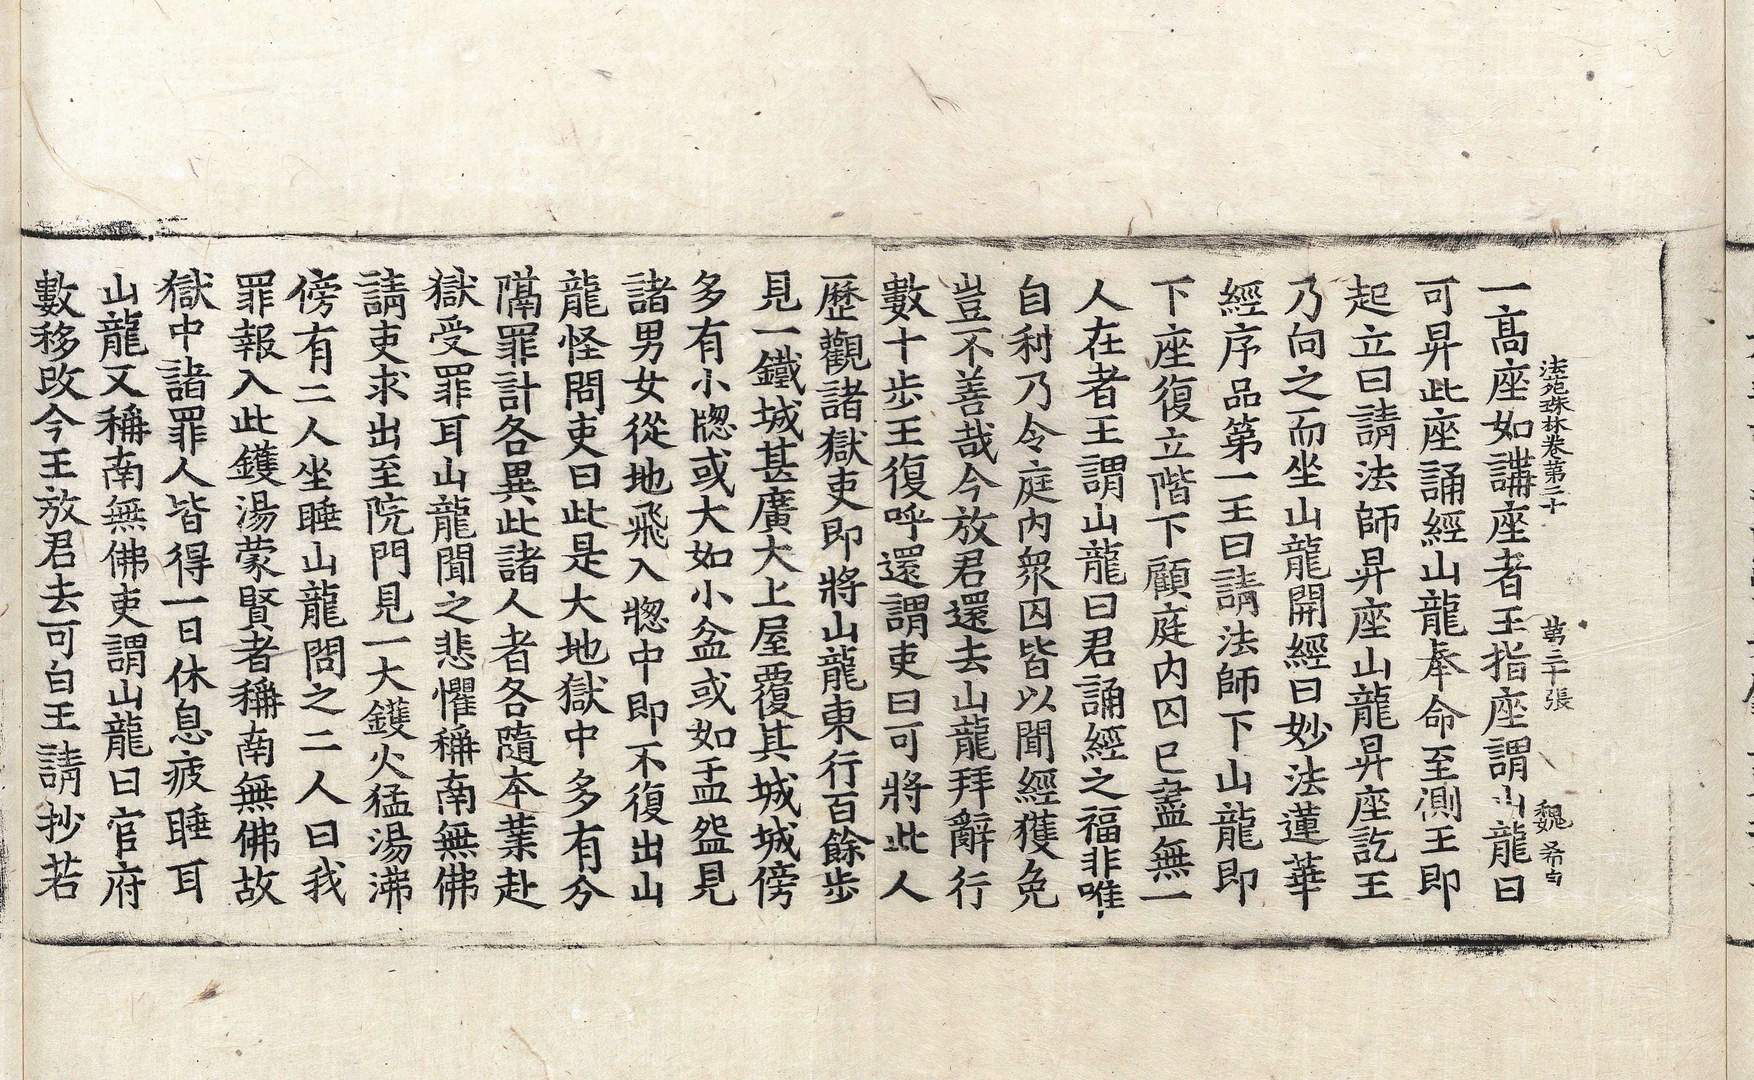 法苑珠林卷第二十　第三十張　魏希
一高座如講座者王指座謂山龍曰
可昇此座誦經山龍奉命至測王即
起立曰請法師昇座山龍昇座訖王
乃向之而坐山龍開經曰妙法蓮華
經序品第一王曰請法師下山龍即
下座復立階下顧庭内囚已盡無一
人在者王謂山龍曰君誦經之福非唯
自利乃令庭内衆囚皆以聞經獲免
豈不善哉今放君還去山龍拜辭行
數十步王復呼還謂吏曰可將此人
歷觀諸獄吏即將山龍東行百餘步
見一鐵城甚廣大上屋覆其城城傍
多有小牎或大如小盆或如盂盌見
諸男女從地飛入牎中即不復出山
龍怪問吏曰此是大地獄中多有分
隔罪計各異此諸人者各隨本業赴
獄受罪耳山龍聞之悲懼稱南無佛
請吏求出至院門見一大鑊火猛湯沸
傍有二人坐睡山龍問之二人曰我
罪報入此鑊湯蒙賢者稱南無佛故
獄中諸罪人皆得一日休息疲睡耳
山龍又稱南無佛吏謂山龍曰官府
數移改今王放君去可白王請抄若